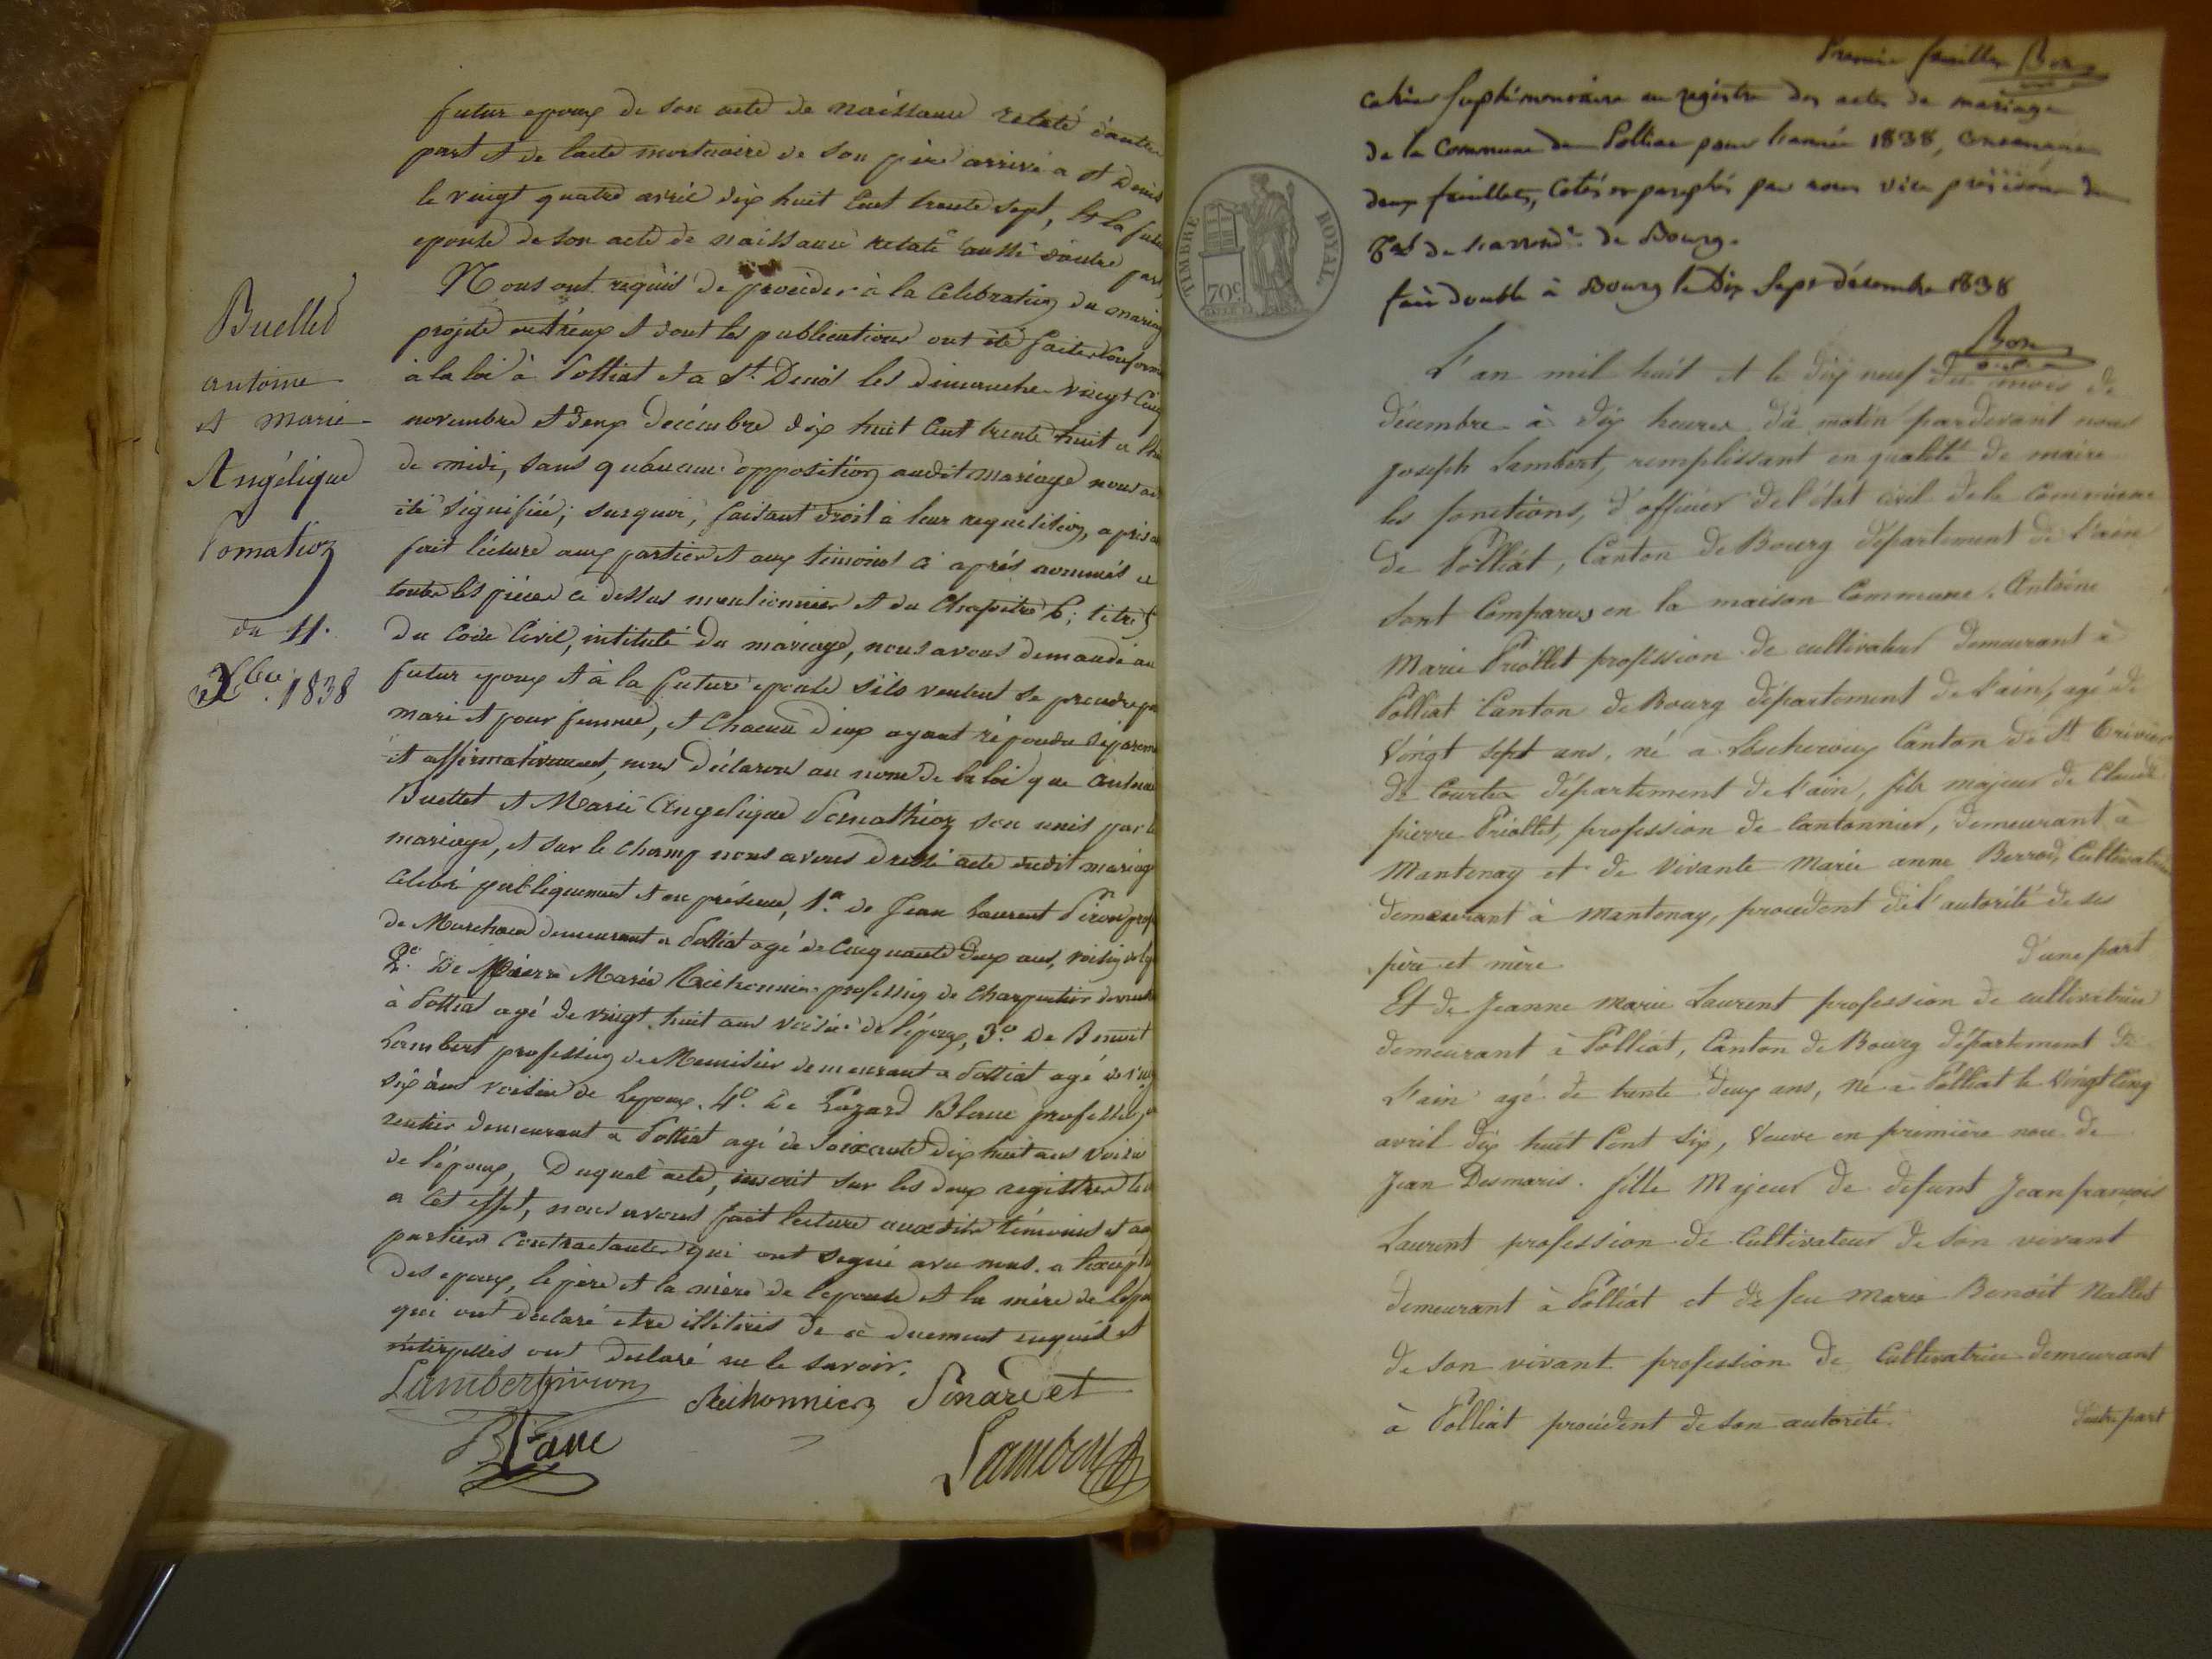 futur epoux de son acte de naissance relaté d'autre
part et de l'acte mortuaire de son père arrivé a St Denis
le vingt quatre avril dix huit cent trente sept, et la future
epouse de son acte de naissance relaté aussi d'autre part
Nous ont requis de proceder à la celebration du mariage
projeté entr'eux et dont les publications ont été faites conform
à la loi à Polliat et a St. Denis les dimanche vingt cinq
novembre et deux decembre dix huit cent trente huit a l'he
de midi, sans qu'aucune opposition audit mariage nous ai
été signifiée; surquoi, faisant droit à leur requisition, après a
fait lecture aux parties et aux temoins ci après nommés de
toutes les pièces ci dessus mentionnées et du Chapitre 6; titre 5
du Code Civil, intitulé du mariage, nous avons demandé au
futur epoux et à la future epouse s'ils veulent se prendre po
mari et pour femme, et chacun d'eux ayant répondu séparem
et affirmativement, nous déclarons au nom de la loi que Antoine
Buellet et Marie Angelique Pomathion son unis par le
mariage, et sur le champ nous avons dressé acte dudit mariage
célebré publiquement et en présence, 1.° de Jean Laurent Piron prof
de Marchand demeurant a Polliat agé de cinquante deux ans, voisin de l'ep
2.° De Pierre Marie Réthonnier profession de Charpentier demeurant
à Polliat agé de vingt huit ans voisin de l'époux, 3.° De Benoit
Lambert profession de Menuisier demeurant a Polliat agé de vingt
six ans voisin de l'epoux. 4.° de Lazard Blanc profession de
rentier demeurant a Polliat agé de soixante dix huit ans voisin
de l'époux, Duquel acte, inscrit sur les deux registres tenus
a cet effet, nous avons fait lecture auxdits témoins et aux
parties contractantes qui ont signé avec nous. a l'exception
des epoux, le père et la mère de l'epouse et la mère de l'epoux
qui ont déclaré etre illitérés de ce duement enquis et
interpellés ont declaré ne le savoir.
Lambert piron
Réthonnier
Blanc
Lambert
Buellet
antoine
et marie
Angélique
Pomation
du 11.
Xbre. 1838
Premier feuillet Bon
cahier suplémentaire au registre des actes de mariage
de la commune de Polliat pour l'année 1838, contenant
deux feuillets, cotés et paraphés par nous vice président du
Tal de l'arrondt. de Bourg.
fait double à Bourg le dix sept décembre 1838
Bon
TIMBRE ROYAL
70c
L'an mil huit et le dix neuf du mois de
décembre à dix heures du matin pardevant nous
joseph Lambert, remplissant en qualité de maire
les fonctions, d'officier de l'état civil de la commune
de Polliat, Canton de Bourg département de l'ain
sont Comparus en la maison Commune. Antoine
Marie Priollet profession de cultivateur demeurant à
Polliat Canton de Bourg département de l'ain, agé de
vingt sept ans, né à Lescheroux Canton de St Trivier
de Courtes département de l'ain, fils majeur de Claude
pierre Priollet, profession de Cantonnier, demeurant à
Mantenay et de vivante Marie anne Berrod, Cultivatrice
demeurant à Mantenay, procédent de l'autorité de ses
père et mère
d'une part
Et de Jeanne Marie Laurent profession de cultivatrice
demeurant à Polliat, Canton de Bourg département de
l'ain agé de trente deux ans, né à Polliat le vingt cinq
avril dix huit Cent six, Veuve en première noce de
Jean Desmaris. fille Majeur de defunt Jean françois
Laurent profession de Cultivateur de son vivant
demeurant à Polliat et de feu Marie Benoit Nallet
de son vivant profession de Cultivatrice demeurant
à Polliat procédent de son autorité.
d'autre part